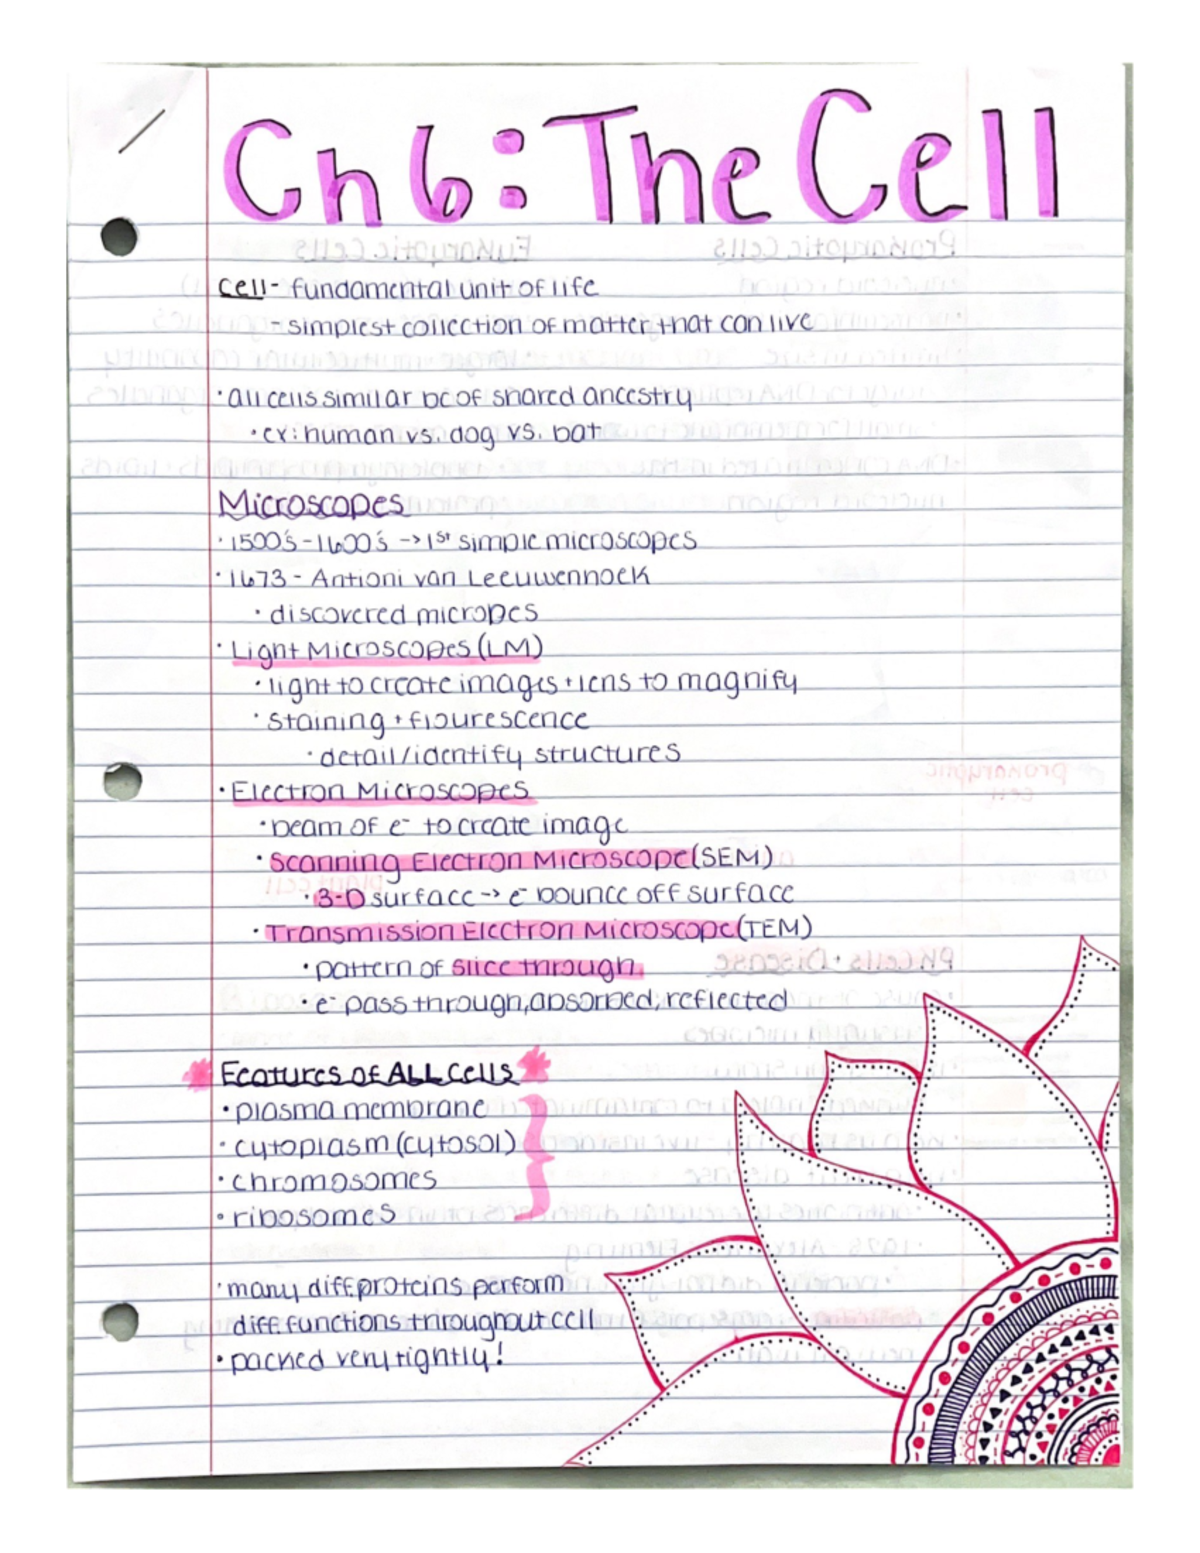 Ch 6: The Cell
Cell- fundamental unit of life
- simplest collection of matter that can live
· all cells similar bc of shared ancestry
· ex: human vs. dog vs. bat
Microscopes
· 1500's-1600's → 1st simple microscopes
· 1673 - Antioni van Leeuwenhoek
· discovered micropes
· Light Microscopes (LM)
· light to create images + lens to magnify
· staining + flourescence
· detail/identify structures
· Electron Microscopes
· beam of e⁻ to create image
· Scanning Electron Microscope (SEM)
· 3-D surface → e⁻ bounce off surface
· Transmission Electron Microscope (TEM)
· pattern of slice through
· e⁻ pass through, absorbed, reflected
Features of ALL Cells
· plasma membrane
· cytoplasm (cytosol)
· chromosomes
· ribosomes
· many diff. proteins perform
diff. functions throughout cell
· packed very tightly!